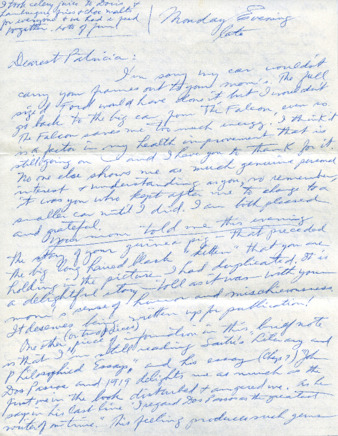 I took celery, juice to Doris &
hamburgers, fries & choc malts
for everyone & we had a feed
together. Lots of fun!
Monday Evening
late
Dearest Patricia:
I'm sorry my car wouldn't
carry your frames out to your mom's. The full
size Ford would have done it but I wouldn't
go back to the big car from The Falcon, even so
The Falcon saves me too much energy. I think it
is a factor in my health improvement that is
still going on and I have you to thank for it.
No one else shows me as much genuine personal
interest & understanding as you, no remember,
it was you who kept after me to change to a
smaller car until I did. I am both pleased
and grateful.
Your mom told me this evening
the story of your guinea pig that preceded
the big long haired black "kitten" that you are
holding in the picture I had duplicated. It is
a delightful story – told as it was with your
mom's sense of humor and mischievousness
It deserves being written up for publication!
One other piece of information in this brief note
(or two) (pieces)
is that I'm still reading Sartre's Literary and
Philosophical Essays, and his essay (Chap?) John
Dos Passos and 1919 delights me as much as the
first one in the book disturbed & angered me. As he
says in his last line "I regard Dos Passos as the greatest
writer of our time." This feeling produces such genu